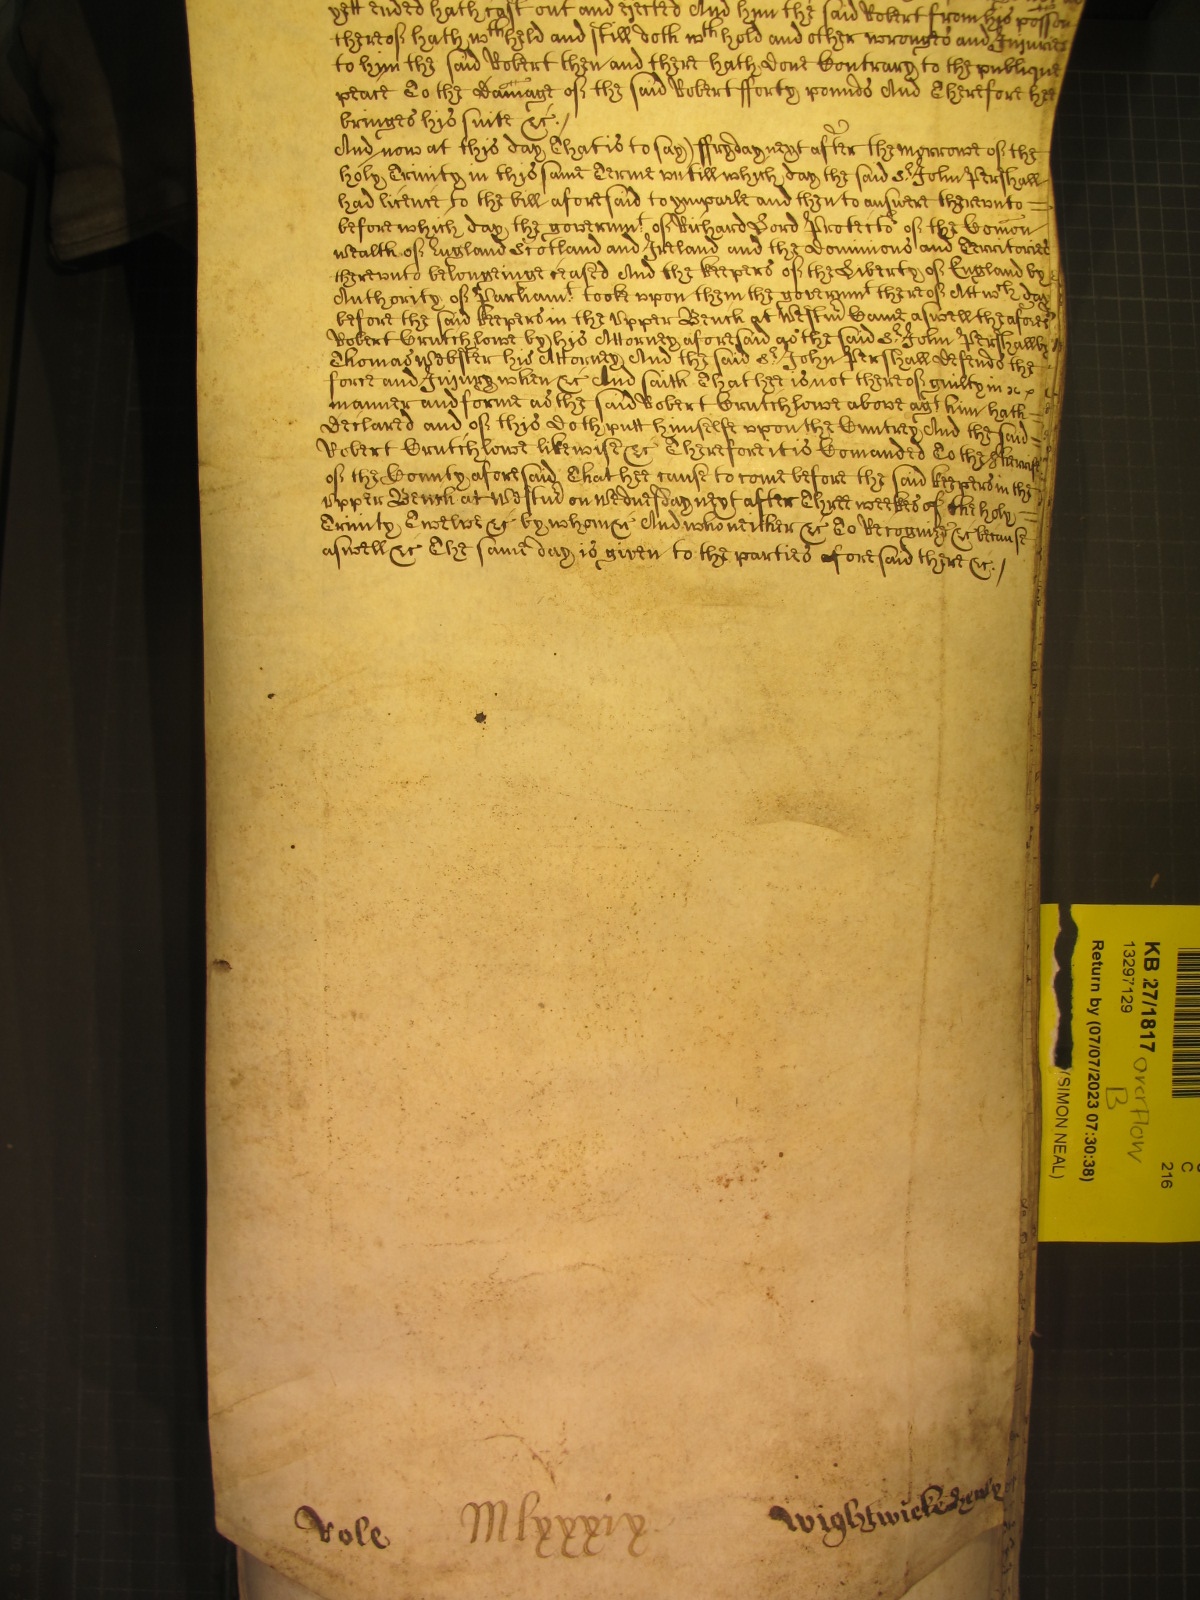 yett ended hath cast out and ejected And him the said Robert from his possōn
thereof hath wth held and still doth wth hold and other wronges and Injuries
to him the said Robert then and there hath done Contrary to the publique
peace To the damage of the said Robert fforty pounds And Therefore hee
bringes his suite &c./
And now at this day That is to say ffryday next after the morrowe of the
holy Trinity in this same Terme untill which day the said Sr. John Pershall
had licence to the bill aforesaid to ymparle and then to answere thereunto =
before which day the governmt. of Richard Lord Protector of the Comon
wealth of England Scotland and Ireland and the Dominions and Territories
thereunto belongeinge ceased And the keepers of the Liberty of England by
Authority of Parliamt. tooke upon them the governmt thereof Att wch day
before the said keepers in the Upper Bench at Westm̄ Came aswell the afores
Robert Crutchlowe by his Attorney aforesaid as the said Sr. John Pershall by
Thomas Webster his Attorney And the said Sr. John Pershall defends the
force and Injury when &c And saith That hee is not thereof guilty in
manner and forme as the said Robert Crutchlowe above agt him hath
Declared and of this doth putt himselfe upon the Cuntrey And the said
Robert Crutchlowe likewise &c Therefore it is Comanded To the Sherriffe
of the County aforesaid That hee cause to come before the said keepers in the
Upper Bench at Westm̄ on wednesday next after Three weekes of the holy =
Trinity Twelve &c by whom &c And who neither &c To Recognize &c because
aswell &c The same day is given to the parties aforesaid there &c./
Role Mlxxxix Wightwicke
KB 27/1817
13297129
Return by (07/07/2023 07:30:38)
(SIMON NEAL)
overflow
B
C
216